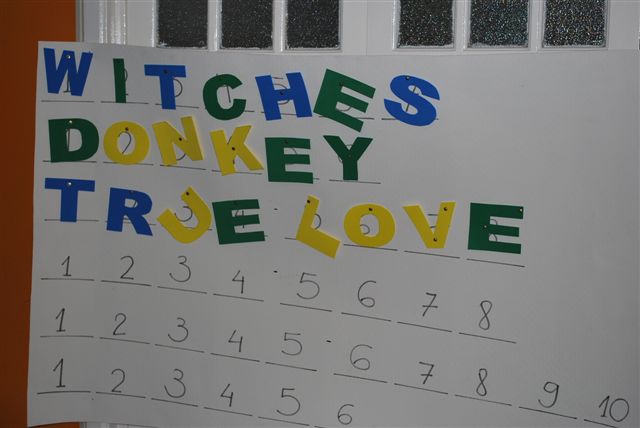 WITCHES
DONKEY
TRUE LOVE
1 2 3 4 - 5 6 7 8
1 2 3 4 5 - 6 7 8 9 10
1 2 3 4 5 6